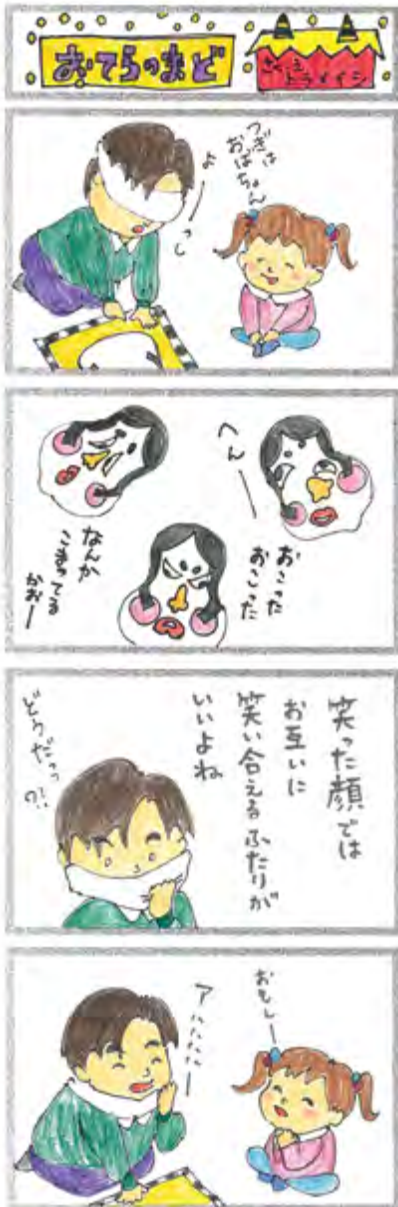 おてらのまど
さく・え
つぎは
おばちゃん
よーっし
おこった
おこった
へんー
なんか
こまってる
かおー
笑った顔では
お互いに
笑い合えるふたりが
いいよね
どうだっっ?!
おもしー
アハハハハー